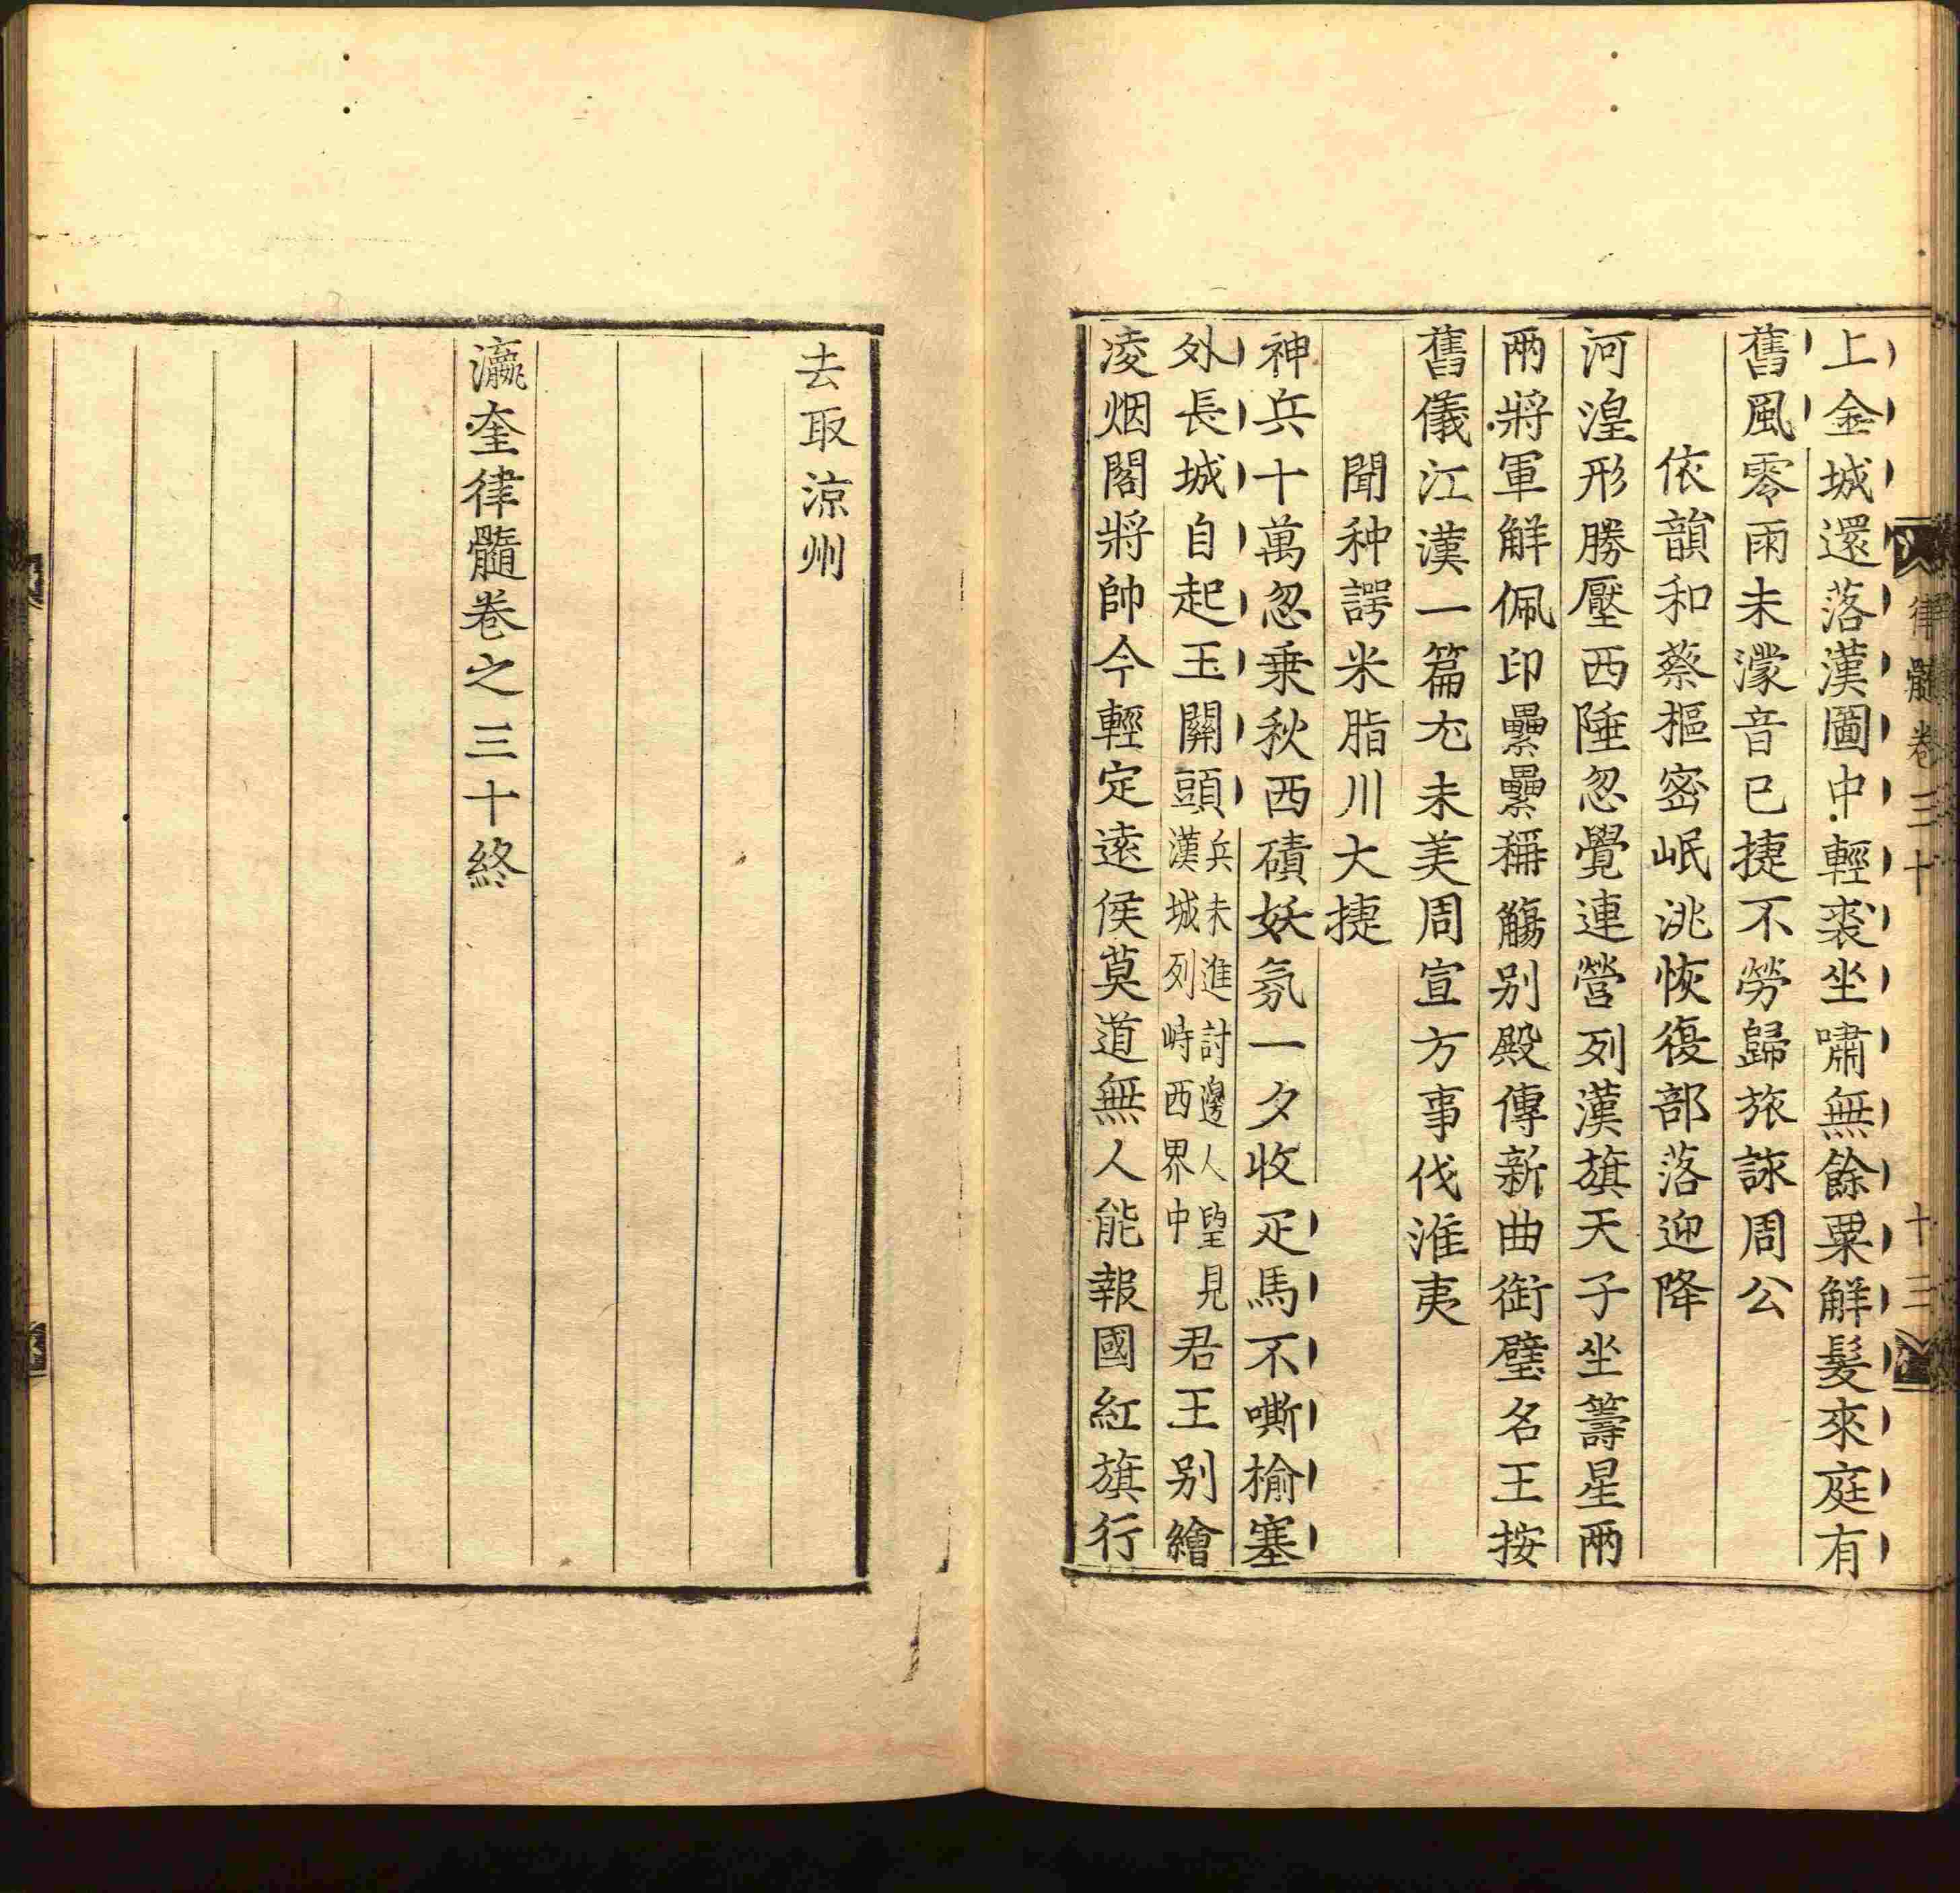 上金城還落漢圖中輕裘坐嘯無餘粟觧髮來庭有
舊風零雨未濛音已捷不勞歸旅詠周公
依韻和蔡樞密岷洮恢復部落迎降
河湟形勝壓西陲忽覺連營列漢旗天子坐籌星兩
兩將軍觧佩印纍纍稱觴别殿傳新曲銜璧名王按
舊儀江漢一篇尤未美周宣方事伐淮夷
聞种諤米脂川大捷
神兵十萬忽乗秋西磧妖氛一夕收疋馬不嘶榆塞
外長城自起玉關頭兵未進討邊人望見
漢城列峙西界中君王别繪
凌烟閣將帥今輕定遠侯莫道無人能報國紅旗行
律髓卷三十
十三
去取涼州
瀛奎律髓巻之三十終